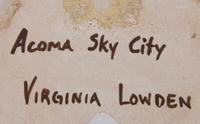 Acoma Sky City
Virginia Lowden